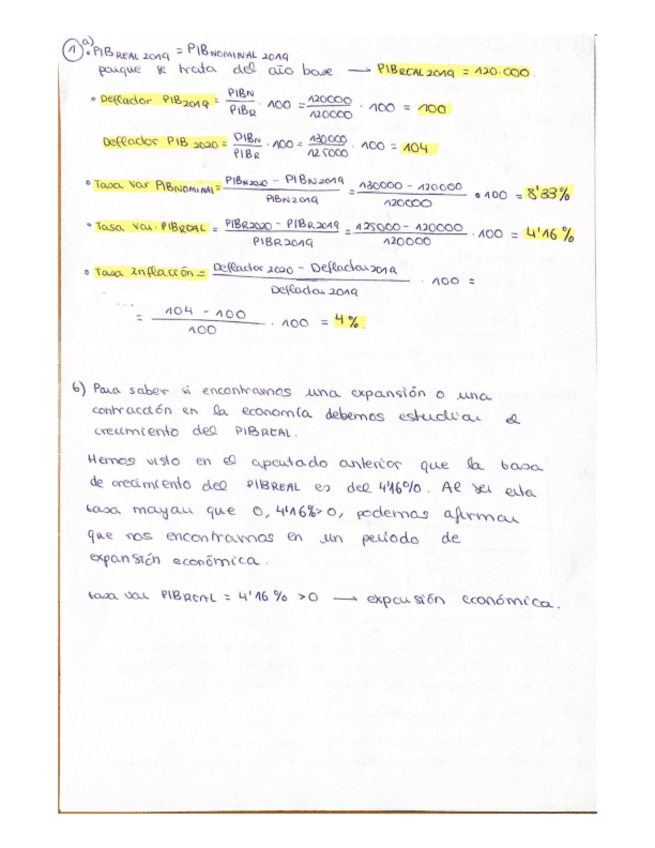 1 a)
• PIB REAL 2019 = PIB NOMINAL 2019
porque se trata del año base → PIB REAL 2019 = 120.000.
• Deflactor PIB 2019 = PIBN / PIBR · 100 = 120000 / 120000 · 100 = 100
Deflactor PIB 2020 = PIBN / PIBR · 100 = 130000 / 125000 · 100 = 104
• Tasa Var PIB NOMINAL = PIBN2020 - PIBN2019 / PIBN2019 = 130000 - 120000 / 120000 • 100 = 8'33%
• Tasa Var. PIBREAL = PIBR2020 - PIBR2019 / PIBR2019 = 125000 - 120000 / 120000 · 100 = 4'16%
• Tasa Inflación = Deflactor 2020 - Deflactor 2019 / Deflactor 2019 · 100 =
= 104 - 100 / 100 · 100 = 4%.
b) Para saber si encontramos una expansión o una
contracción en la economía debemos estudiar el
crecimiento del PIBREAL.
Hemos visto en el apartado anterior que la tasa
de crecimiento del PIBREAL es del 4'16%. Al ser esta
tasa mayor que 0, 4'16%>0, podemos afirmar
que nos encontramos en un periodo de
expansión económica.
tasa var PIBREAL = 4'16% >0 → expansión económica.